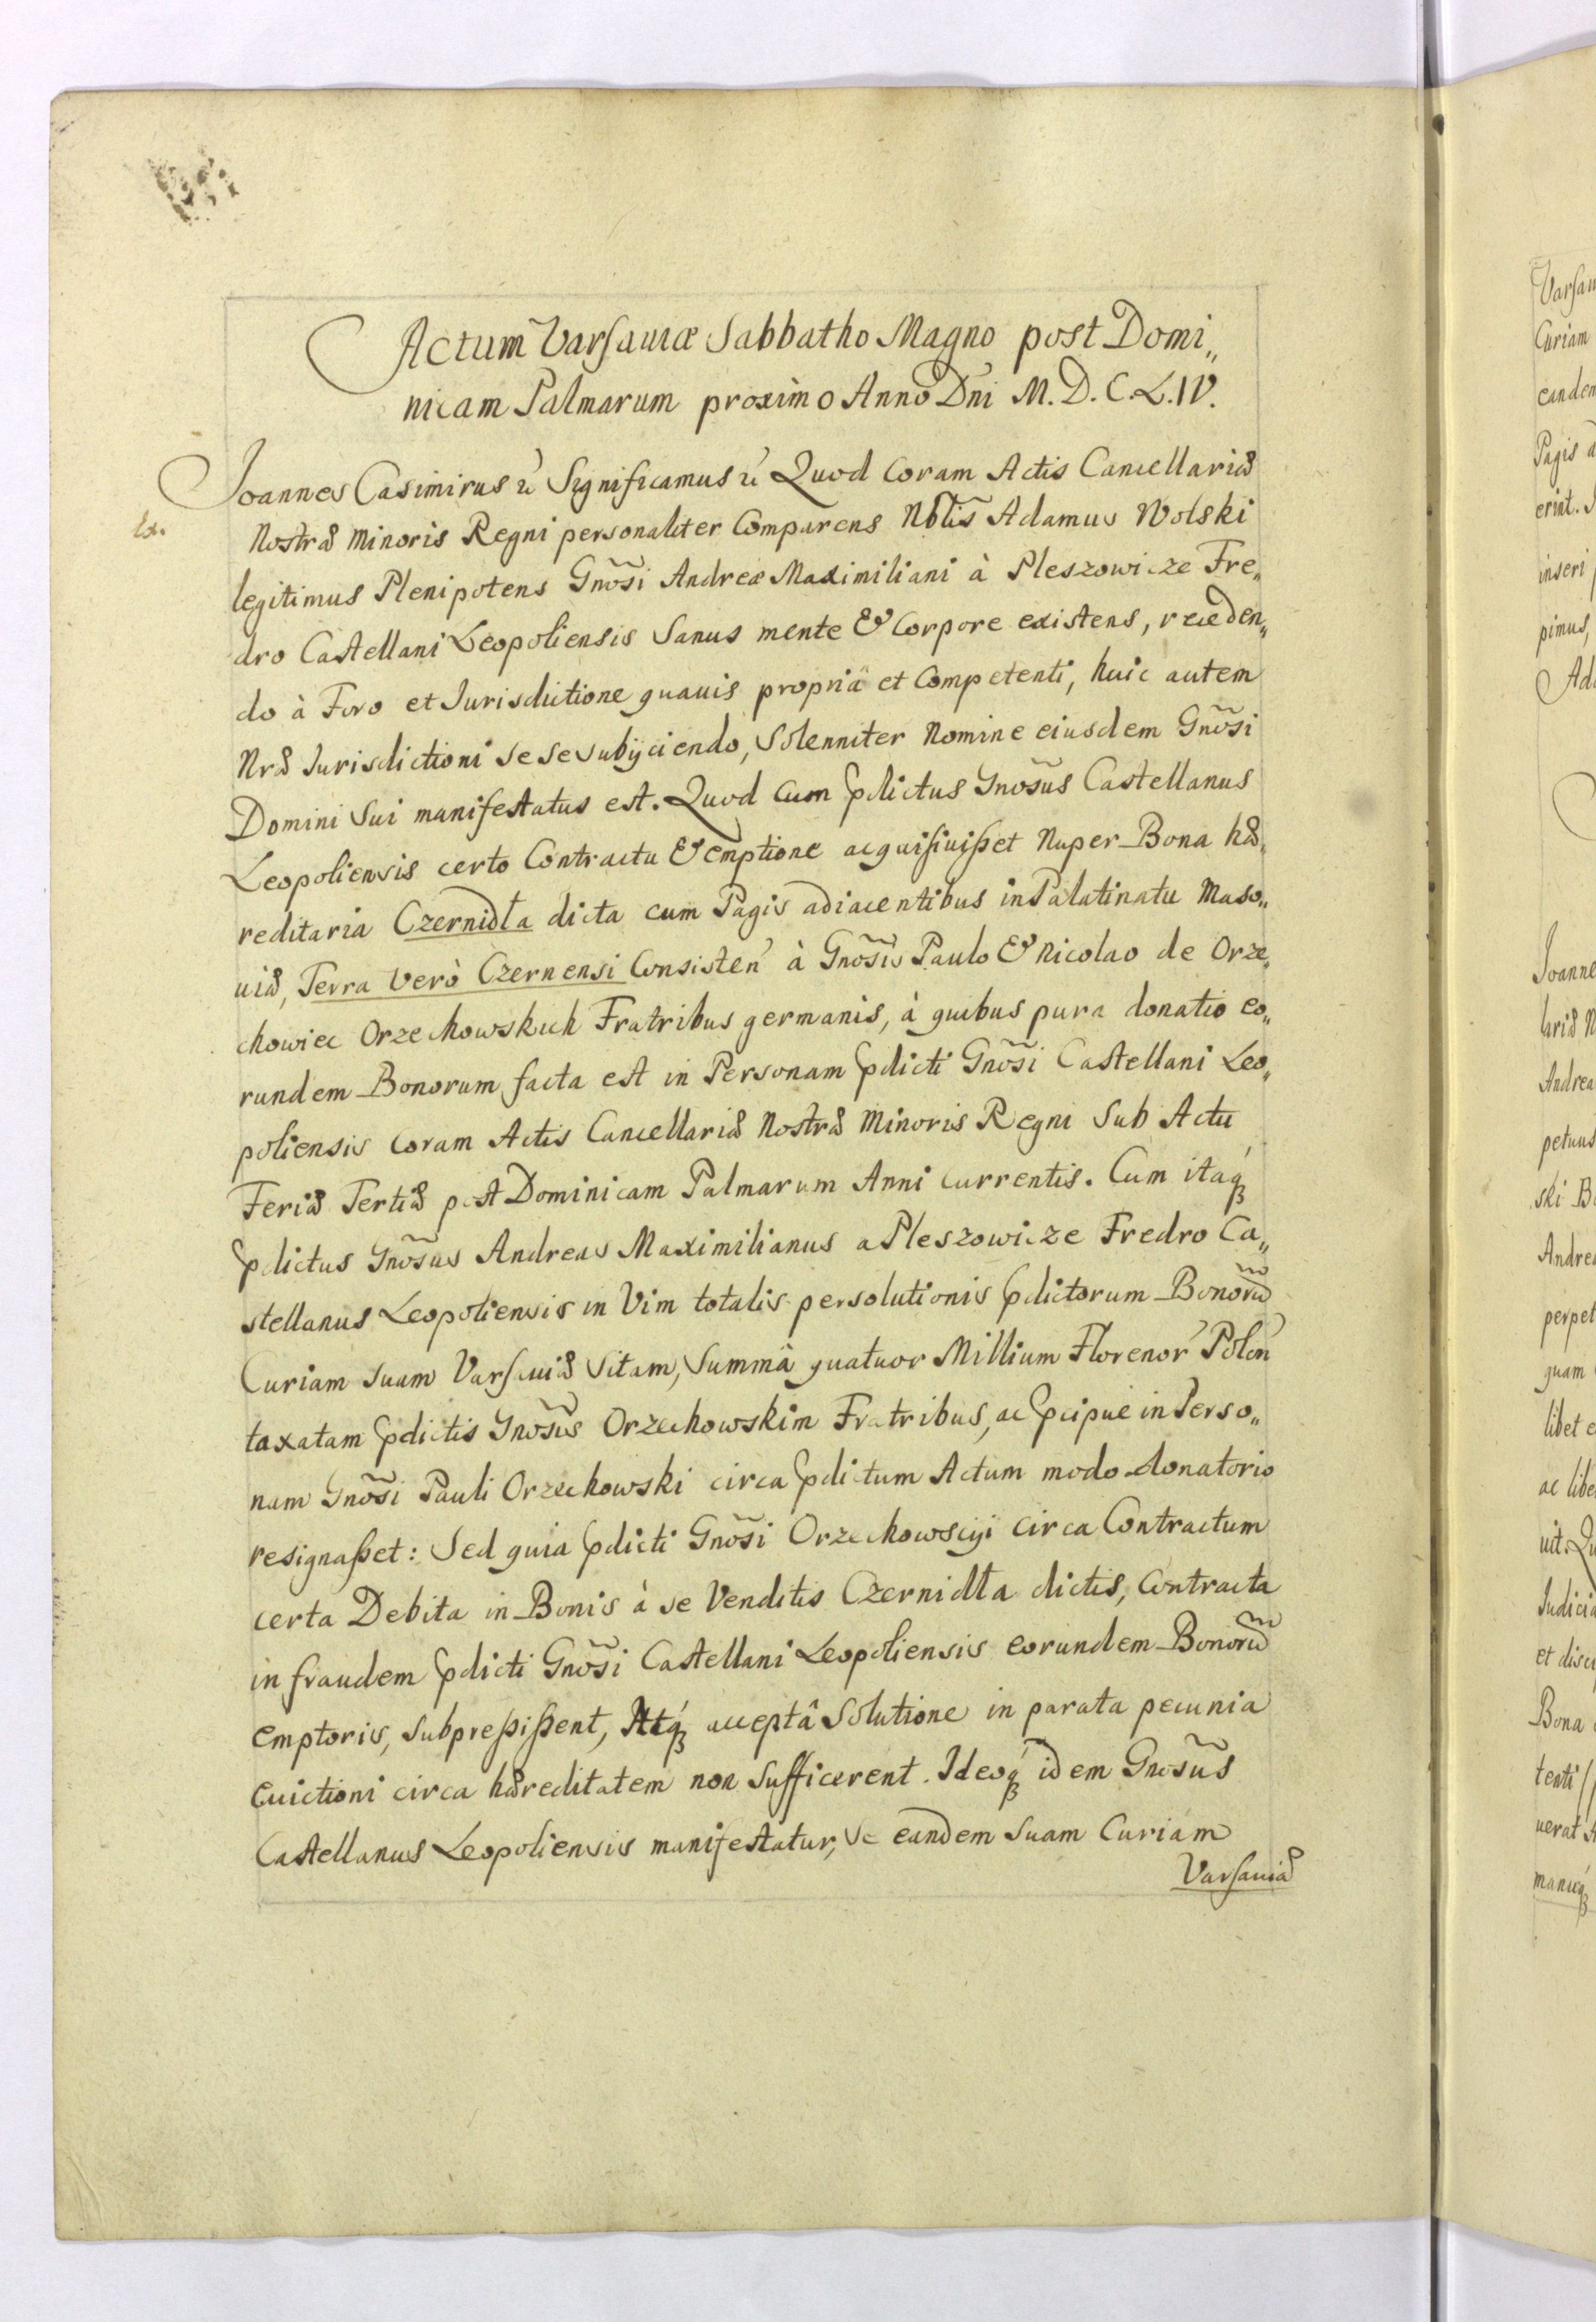 Actum Varsauiæ Sabbatho Magno post Domi„
nicam Palmarum proximo Anno Dni M. D. C. L. IV.
Joannes Casimirus ꝛc Significamus ꝛc Quod coram Actis Cancellariæ
Ex.
Nostræ Minoris Regni personaliter Comparens Nblis Adamus Wolski
legitimus Plenipotens Gnosi Andreæ Maximiliani à Pleszowicze Fre„
dro Castellani Leopoliensis Sanus mente & Corpore existens, receden„
do à Foro et Jurisdictione quauis propriâ et Competenti, huic autem
Nræ Jurisdictioni se se subijciendo, Solenniter Nomine eiusdem Gnosi
Domini Sui manifestatus est. Quod cum pdictus Gnosus Castellanus
Leopoliensis certo Contractu & emptione acquisiuisset Nuper Bona hæ„
reditaria Czernidła dicta cum Pagis adiacentibus in Palatinatu Maso„
uiæ, Terra verò Czernensi Consisten à Gnosis Paulo & Nicolao de Orze„
chowiec Orzechowskich Fratribus germanis, à quibus pura donatio eo„
rundem Bonorum facta est in Personam pdicti Gnosi Castellani Leo„
poliensis coram Actis Cancellariæ Nostræ Minoris Regni Sub Actu
Feriæ Tertiæ post Dominicam Palmarum Anni currentis. Cum itaq́
pdictus Gnosus Andreas Maximilianus a Pleszowicze Fredro Ca„
stellanus Leopoliensis in Vim totalis persolutionis pdictorum Bonorũ
Curiam suam Varsauiæ Sitam, Summâ quatuor Millium Florenor Polon
taxatam pdictis Gnosis Orzechowskim Fratribus, ac pcipue in Perso„
nam Gnosi Pauli Orzechowski circa pdictum Actum modo donatorio
resignasset: Sed quia pdicti Gnosi Orzechowscÿ circa Contractum
certa Debita in Bonis à se Venditis Czernidła dictis, Contracta
in fraudem pdicti Gnosi Castellani Leopoliensis eorundem Bonorũ
emptoris, subpressissent, Atq́ acceptâ Solutione in parata pecunia
Euictioni circa hæreditatem non Sufficerent. Ideoq́ idem Gnosus
Castellanus Leopoliensis manifestatur, se eandem Suam Curiam
Varsauiæ